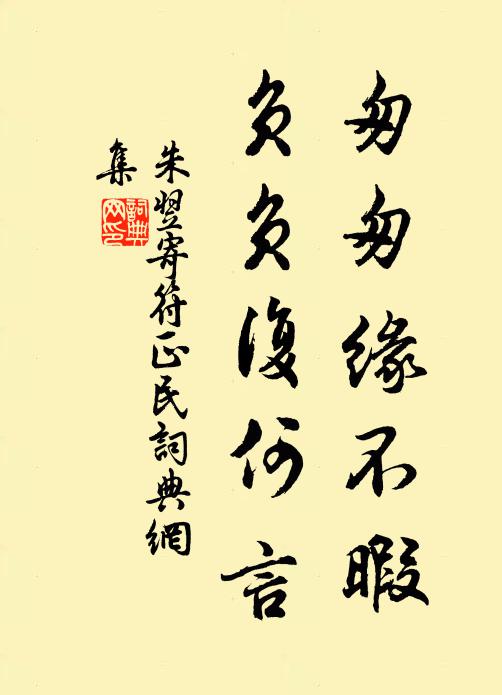 匆匆緣不暇
負負復何言
朱翌寄符正民詞典網
集
詞典
网印